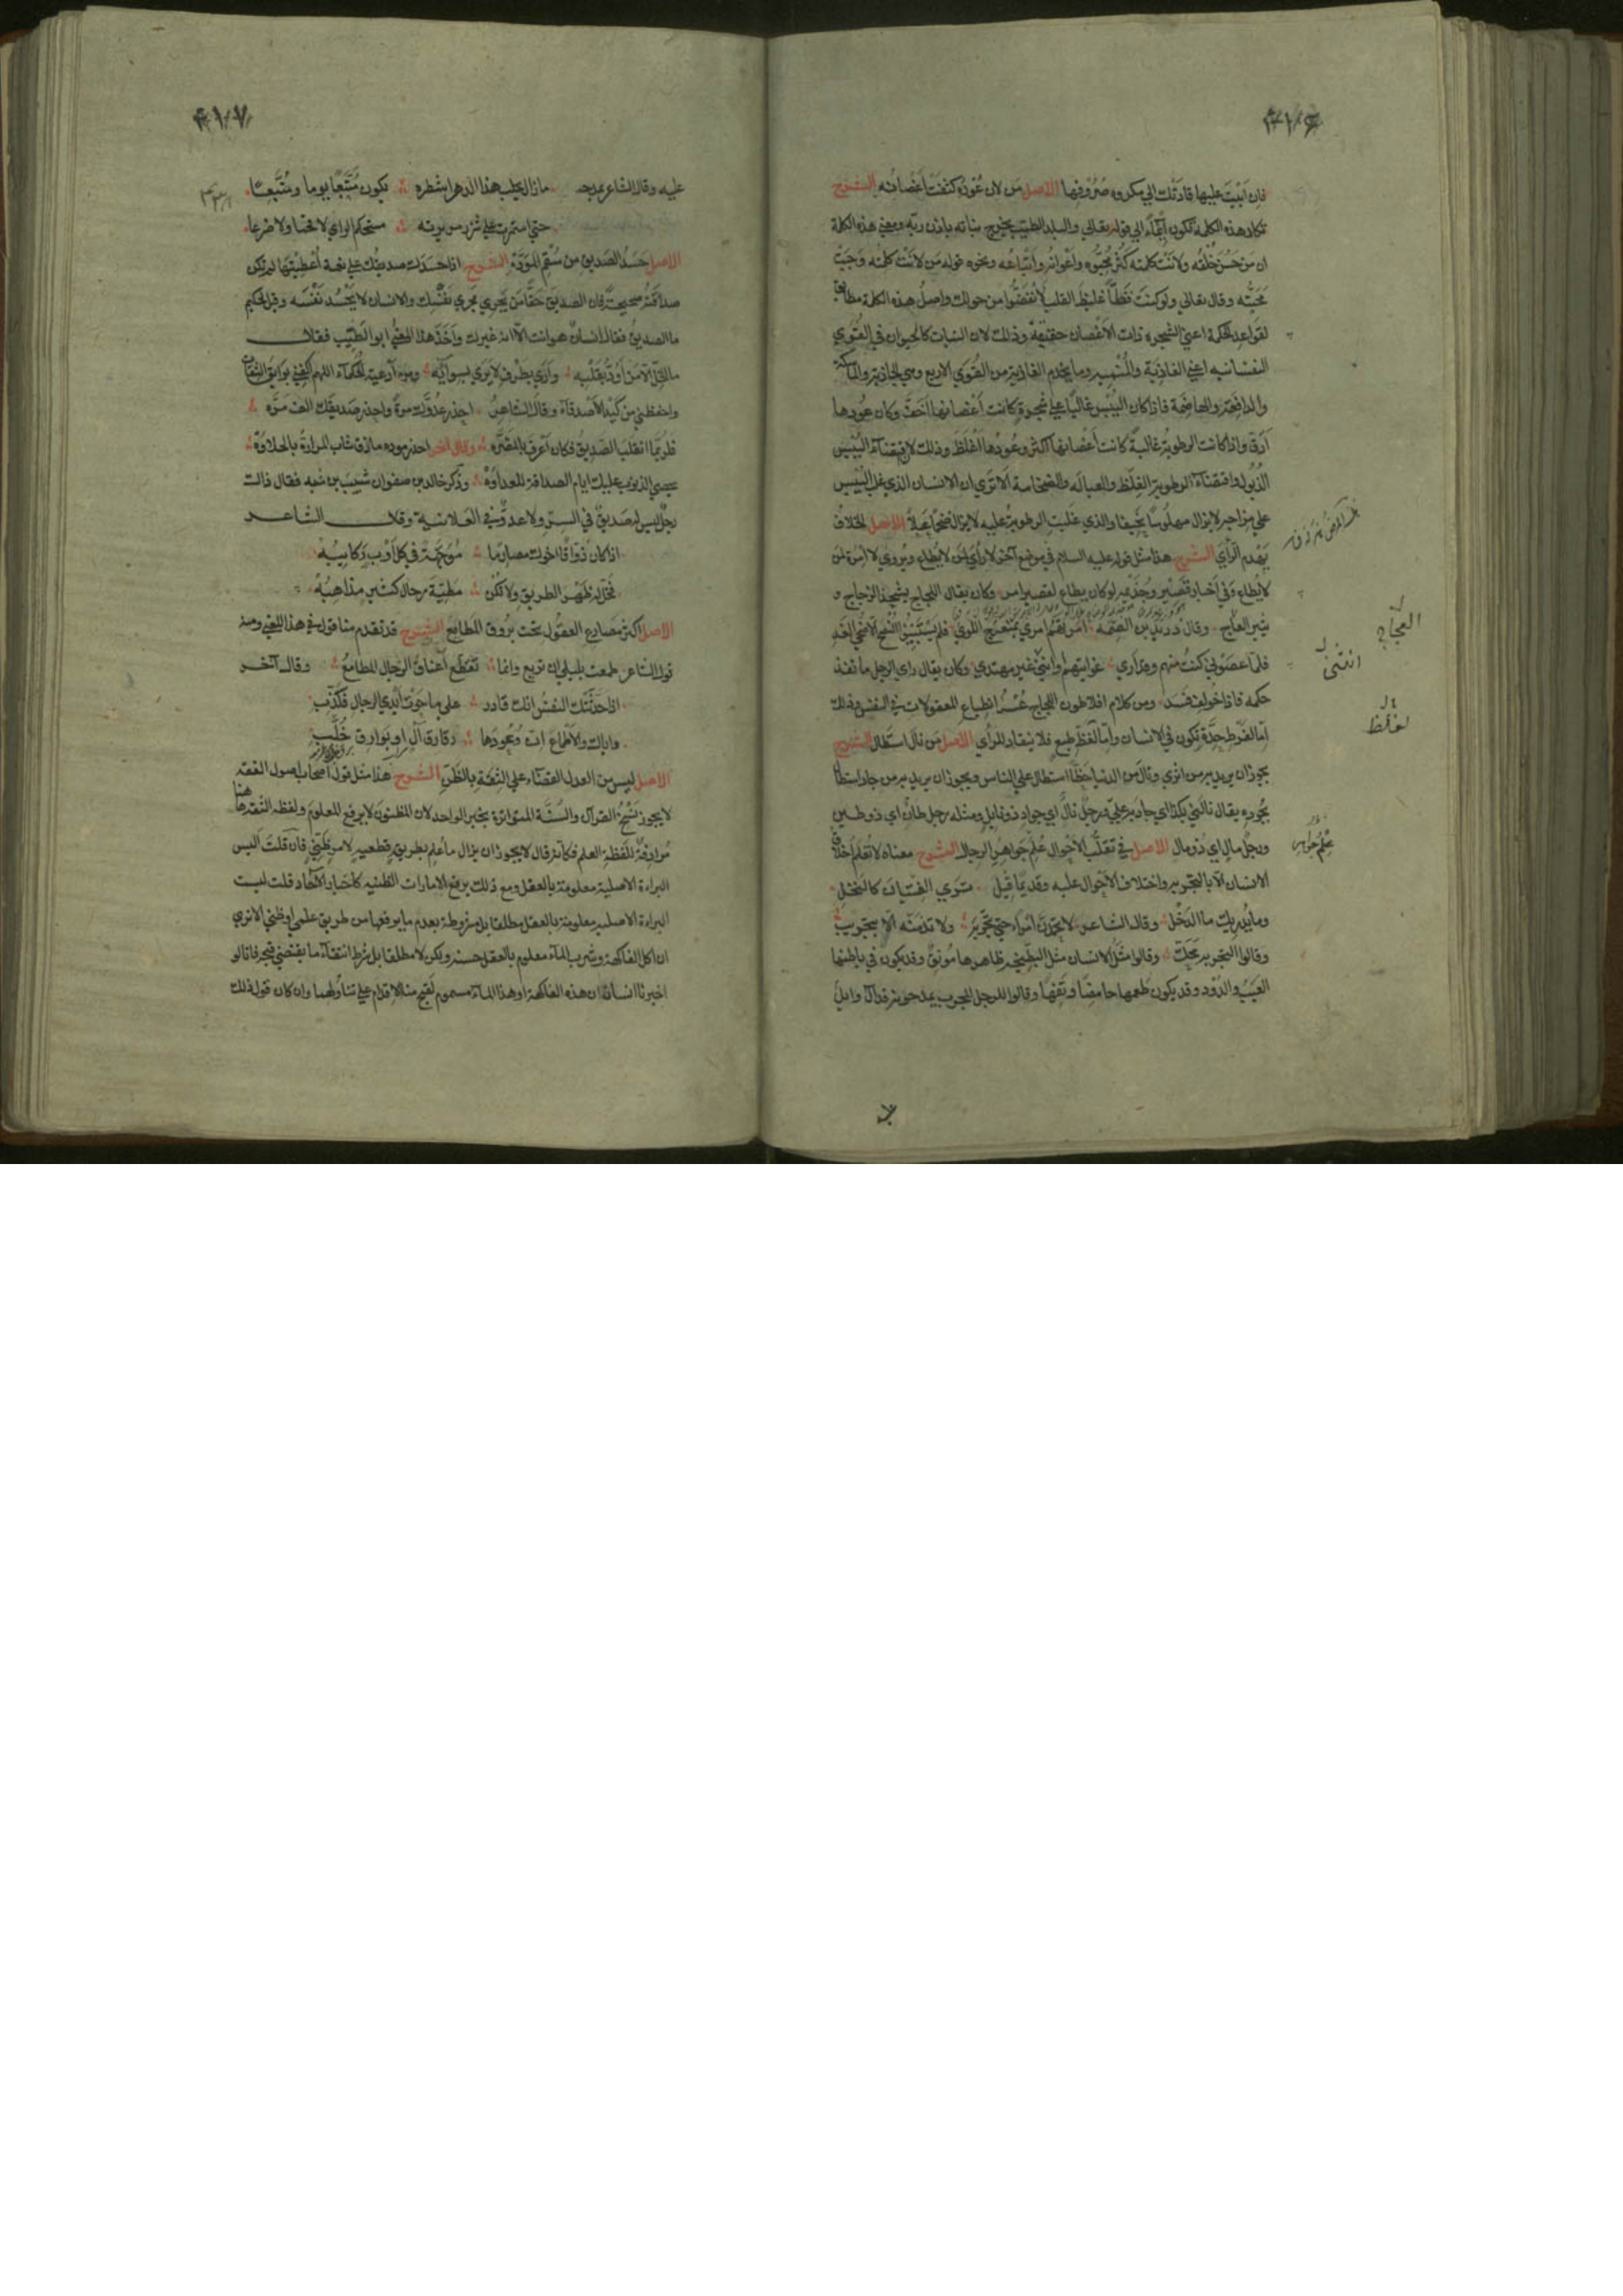 ٤١٦
فان ابَيْتَ عليها قادتك الي مكروه صُرُوفها الاصل مَن لان عُودُه كثفت اَغْصانُه الشرح
تكاد هذه الكلمة تكون ايماءً الي قوله تعالي والبلد الطيب يخرج نباته باذن ربّه ومعني هذه الكلمة
ان مَن حَسُن خُلُقُه ولانَتْ كلمته كَثُر مُحِبّوه واَعْوانُه واَتباعُه ونحوه قوله مَن لانَتْ كلمتُه وَجَبَتْ
مَحَبَّتُه وقال تعالي ولو كنت فظّاً غليظَ القلب لانفَضُّوا من حولك واصلُ هذه الكلمة مطابق
لقواعد الحكمة اعني الشجرة ذات الاَغصان حقيقةً وذلك لان النبات كالحيوان في القُوَي
النفسانيه اعني الغاذيَة والمُنْميه وما يخدم الغاذية من القُوَي الاربع وهي الجاذبة والماسكة
والدافعة والهاضمة فاذا كان اليُبْس غالبًا علي شجرة كانت اَغْصانها اَخَفَّ وكان عُودها
اَدَقّ واذا كانت الرطوبة غالبة كانت اَغْصانها اكثر وعُودها اَغْلَظ وذلك لاقتضاء اليُبْس
الذُبُول واقتضاء الرطوبة الغِلَظ والعبالَه والضخامة الا تَري ان الانسان الذي غلب اليُبْس
علي مزاجه لا يزال مهلُوسًا نحيفا والذي غلبت الرطوبة عليه لا يزال ضخمًا عَبلاً الاصل الخلافُ
يَهْدم الرّأي الشرح هذا مثل قوله عليه السلام في موضع آخر لا رأي لمَن لا يُطاع ويُروي لا اِمْرَة لمَن
لا يُطاع وفي اَخبار قَصير وجُذَيْمه لو كان يطاع لقصير امر وكان يقال اللجاج يشحذ الزجاج و
يثير العجاج وقال دُرَيْد بن الصّمه اَمَرْتهُمُ امري بمُنْعَرَج اللِّوَي فلم يَسْتَبِينُوا النُّصح الا ضُحَي الغَدِ
فلمّا عصَوْني كنتُ منهم وقد اري غوايتهم وانني غير مهتدي وكان يقال راي الرجل ما نفذ
حكمه فاذا خولف فسَد ومن كلام افلاطون اللجاج عُسْرُ انطباع المعقولات في النفس وذلك
امّا لفَرْط حدّة تكون في الانسان وامّا لغلظ طبع فلا ينقاد للرأي الاصل مَن نال استطال الشرح
يجوز ان يريد به من اثري ونال من الدنيا حظّا استطال علي الناس ويجوز ان يريد به من جاد استطال
بجُوده يقال نالَني بكذا اي جاد به عليّ ورجلٌ نالٌ اي جواد ذو نايل ومثله رجل طانٌ اي ذو طين
ورجلٌ مال اي ذُو مال الاصل في تقلّب الاحوال عُلِم جَواهِر الرجال الشرح معناه لا تُعْلَم اَخلاق
الانسان الاّ بالتجربه واختلاف الاَحوال عليه وقديمًا قيل تَري الفتيان كالنخل
وما يُدريك ما الدَخْل وقال الشاعر لا تحمدَنّ اَمرًا حتي تجرّبَه ولا تذمّنّه الاّ بتجريب
وقالوا التجربه مَحَكّ وقالوا مثَلُ الانسان مثل البطّيخه ظاهرها مُونقٌ وقد يكون في باطنها
العَيْب والدُود وقد يكون طعمها حامضًا وتَفِهًا وقالوا للرجل المجرب يمدحونه قد آل وايلَ
العجّاج
انّني
لغلظ
عُلِمَ جَواهِر
٤١٧
عليه وقال الشاعر يمدحه ما زال يحلب هذا الدهر اشطره يكون مُتَّبِعًا يوما ومُتَّبَعًا
حتي استمرت علي شزر مريرته مستحكم الراي لا قحما ولا ضرعا
الاصل حَسَدُ الصَديق من سُقْم المَوَدّة الشرح اذا حَسَدَك صديقُك علي نعمة اُعْطيتها لم تكن
صداقتُه صحيحةً فان الصديق حقًّا مَن يجري مجري نَفْسِك والانسان لا يَحْسُد نَفْسَه وقيل لحكيم
ما الصديق فقال انسانٌ هو انت الاّ انه غيرك واَخَذ هذا المعني ابو الطيّب فقال
ما الخِلّ الاّ مَن اَوَدُّ بقَلْبِه واَري بطَرْفٍ لا يَري بسوائِه ومن اَدعية الحكماء اللهم اكفني بوايق الثقات
واحفظني من كَيْد الاَصدقاء وقال الشاعر احذر عدوّك مرةً واحذر صديقك الف مَرّه
فلربّما انقلب الصديقُ فكان اَعرف بالمضَرّه وقال آخر احذر مودة ماذق شاب المرارة بالحلاوة
يحصي الذنوب عليك ايام الصداقة للعداوَة وذكر خالد بن صفوان شَبيب بن شيبه فقال ذاك
رجل ليس له صديقٌ في السرّ ولا عدوّ في العلانية وقال الشاعر
اذا كان ذوّاقًا اخوك مصارمًا مُوَجّهَةً في كل اَوْب رَكايبُه
فَخَلّ له ظَهْر الطريق ولا تكُن مَطيّةَ رحّال كثير مذاهبُه
الاصل اكثر مَصارع العقُول تحت بُرُوق المطامِع الشرح قد تقدم منا قول في هذا المعني ومنه
قول الشاعر طمعت بليلي ان تريع وانما تقطع اَعناقَ الرجال المطامعُ وقال آخر
اذا حَدّثَتك النفسُ انك قادر علي ما حَوَتْ اَيدي الرجال فكذّب
واياك والاَطماعَ انّ وُعُودَها رقارق آلٍ او بَوارق خُلّب
الاصل ليس من العدل القضاء علي الثقة بالظَنّ الشرح هذا مثل قول اصحاب اصول الفقه
لا يجوز نَسْخُ القرآن والسُنّة المتواترة بخبر الواحد لان المظنون لا يرفع المعلوم ولفظه الثقة هاهنا
مُرادفةٌ للَفظة العلم فكانه قال لا يجوز ان يزال ما عُلِم بطريق قطعيه لامر ظنّي فان قلتَ اَليس
البراءة الاصلية معلومة بالعقل ومع ذلك يرفع الامارات الظنيه كاَخبار الآحاد قلت ليست
البراءة الاصليه معلومة بالعقل مطلقا بل مشروطة بعدم ما يرفعها من طريق علمي او ظني الا تري
ان اكل الفاكهة وشرب الماء معلوم بالعقل حسنه ولكن لا مطلقا بل بشرط انتفاء ما يقتضي قبحه فانا لو
اخبرنا انسان ان هذه الفاكهة او هذا الماء مسموم لقبح منا الاقدام علي تناولهما وان كان قول ذلك